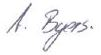 A. Byers.